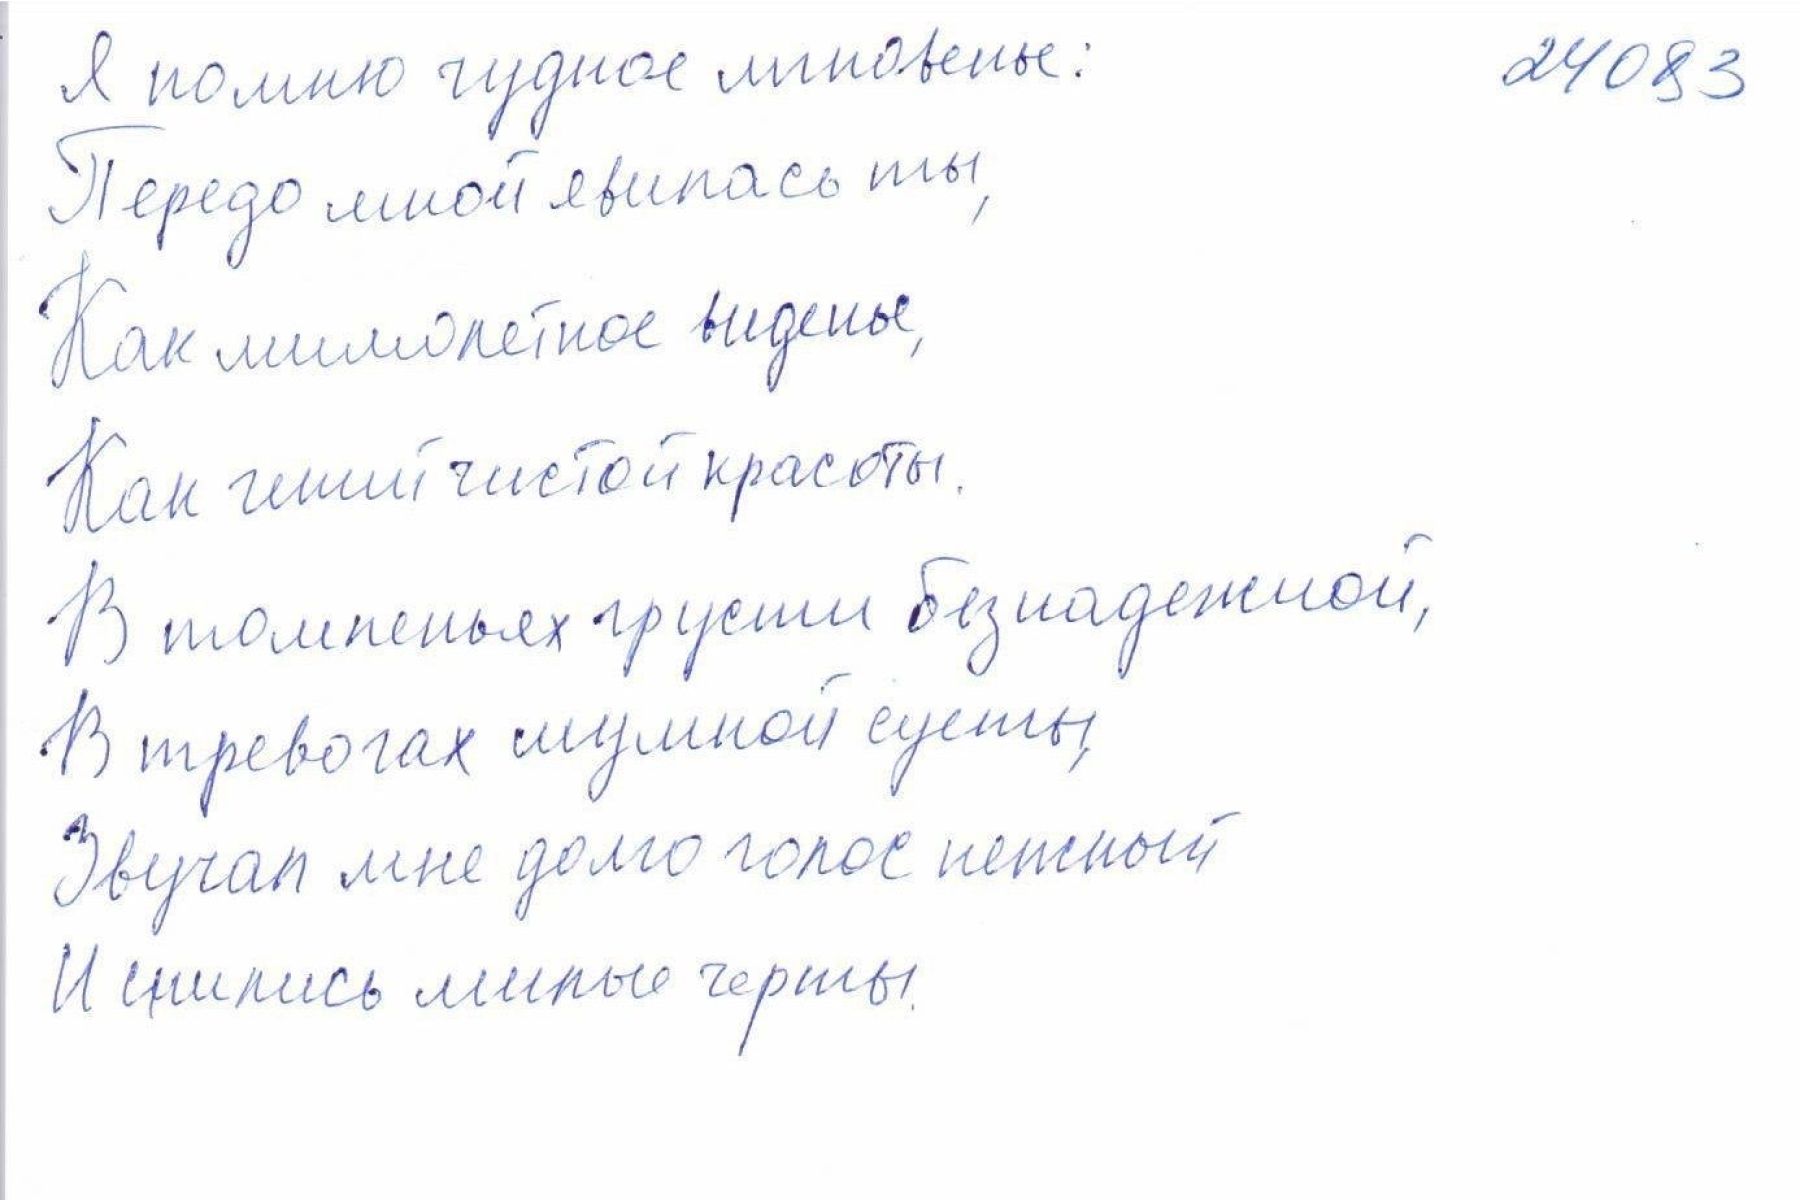 Я помню чудное мгновенье: 24083
Передо мной явилась ты,
Как мимолетное виденье,
Как гений чистой красоты.
В томленьях грусти безнадежной,
В тревогах шумной суеты,
Звучал мне долго голос нежный
И снились милые черты.